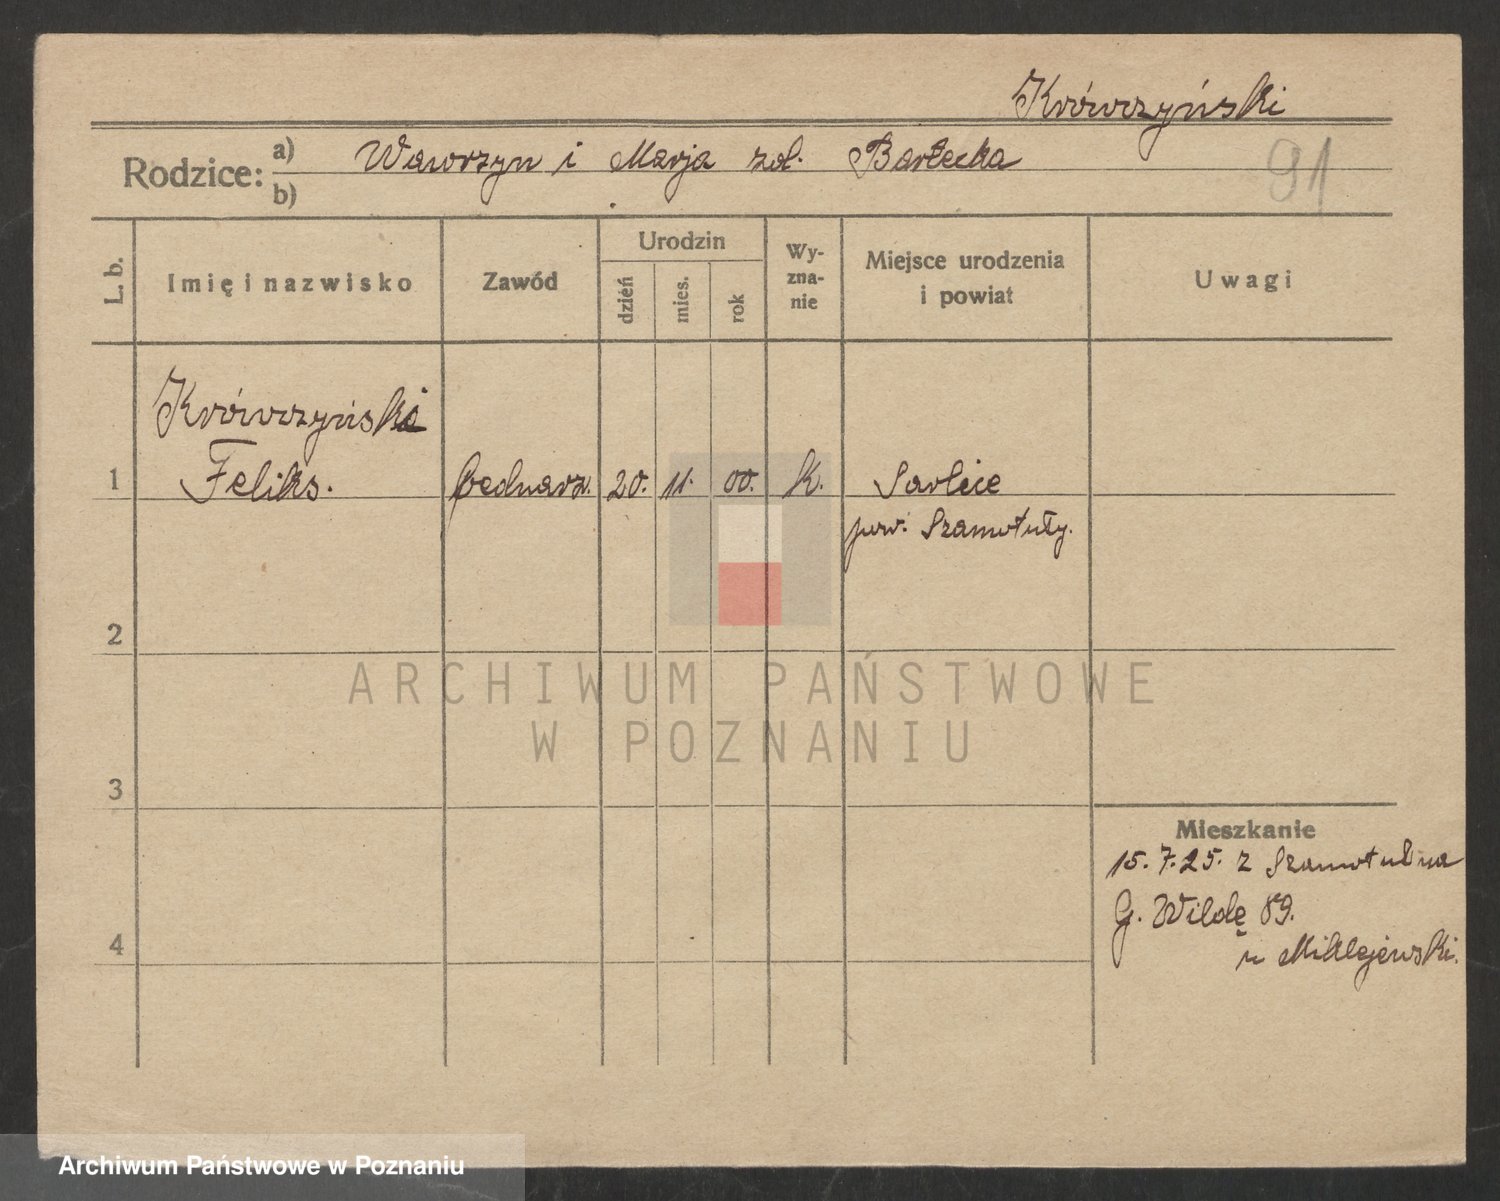 Krówczyński
Rodzice: a) Wawrzyn i Marja zd. Bartecka
b)
91
L. b.
Imię i nazwisko
Zawód
Urodzin
dzień
mies.
rok
Wy-
zna-
nie
Miejsce urodzenia
i powiat
Uwagi
Krówczyński
1 Feliks. bednarz. 20. 11. 00. K.
pow. Szamotuły.
2
3
4
Mieszkanie
15. 7. 25. z Szamotuł na
G. Wildę 89.
u Mikłejewski.
ARCHIWUM PAŃSTWOWE
W POZNANIU
Archiwum Państwowe w Poznaniu